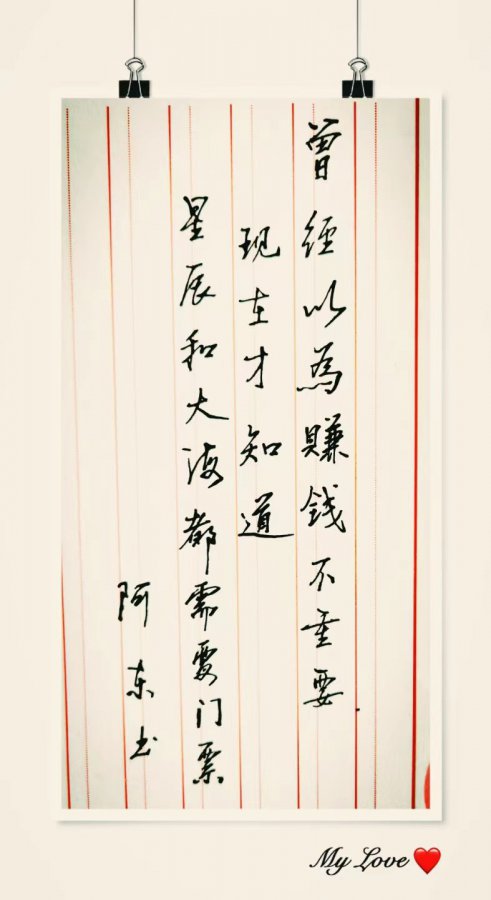 曾經以為賺錢不重要
現在才知道
星辰和大海都需要门票
阿东书
My Love